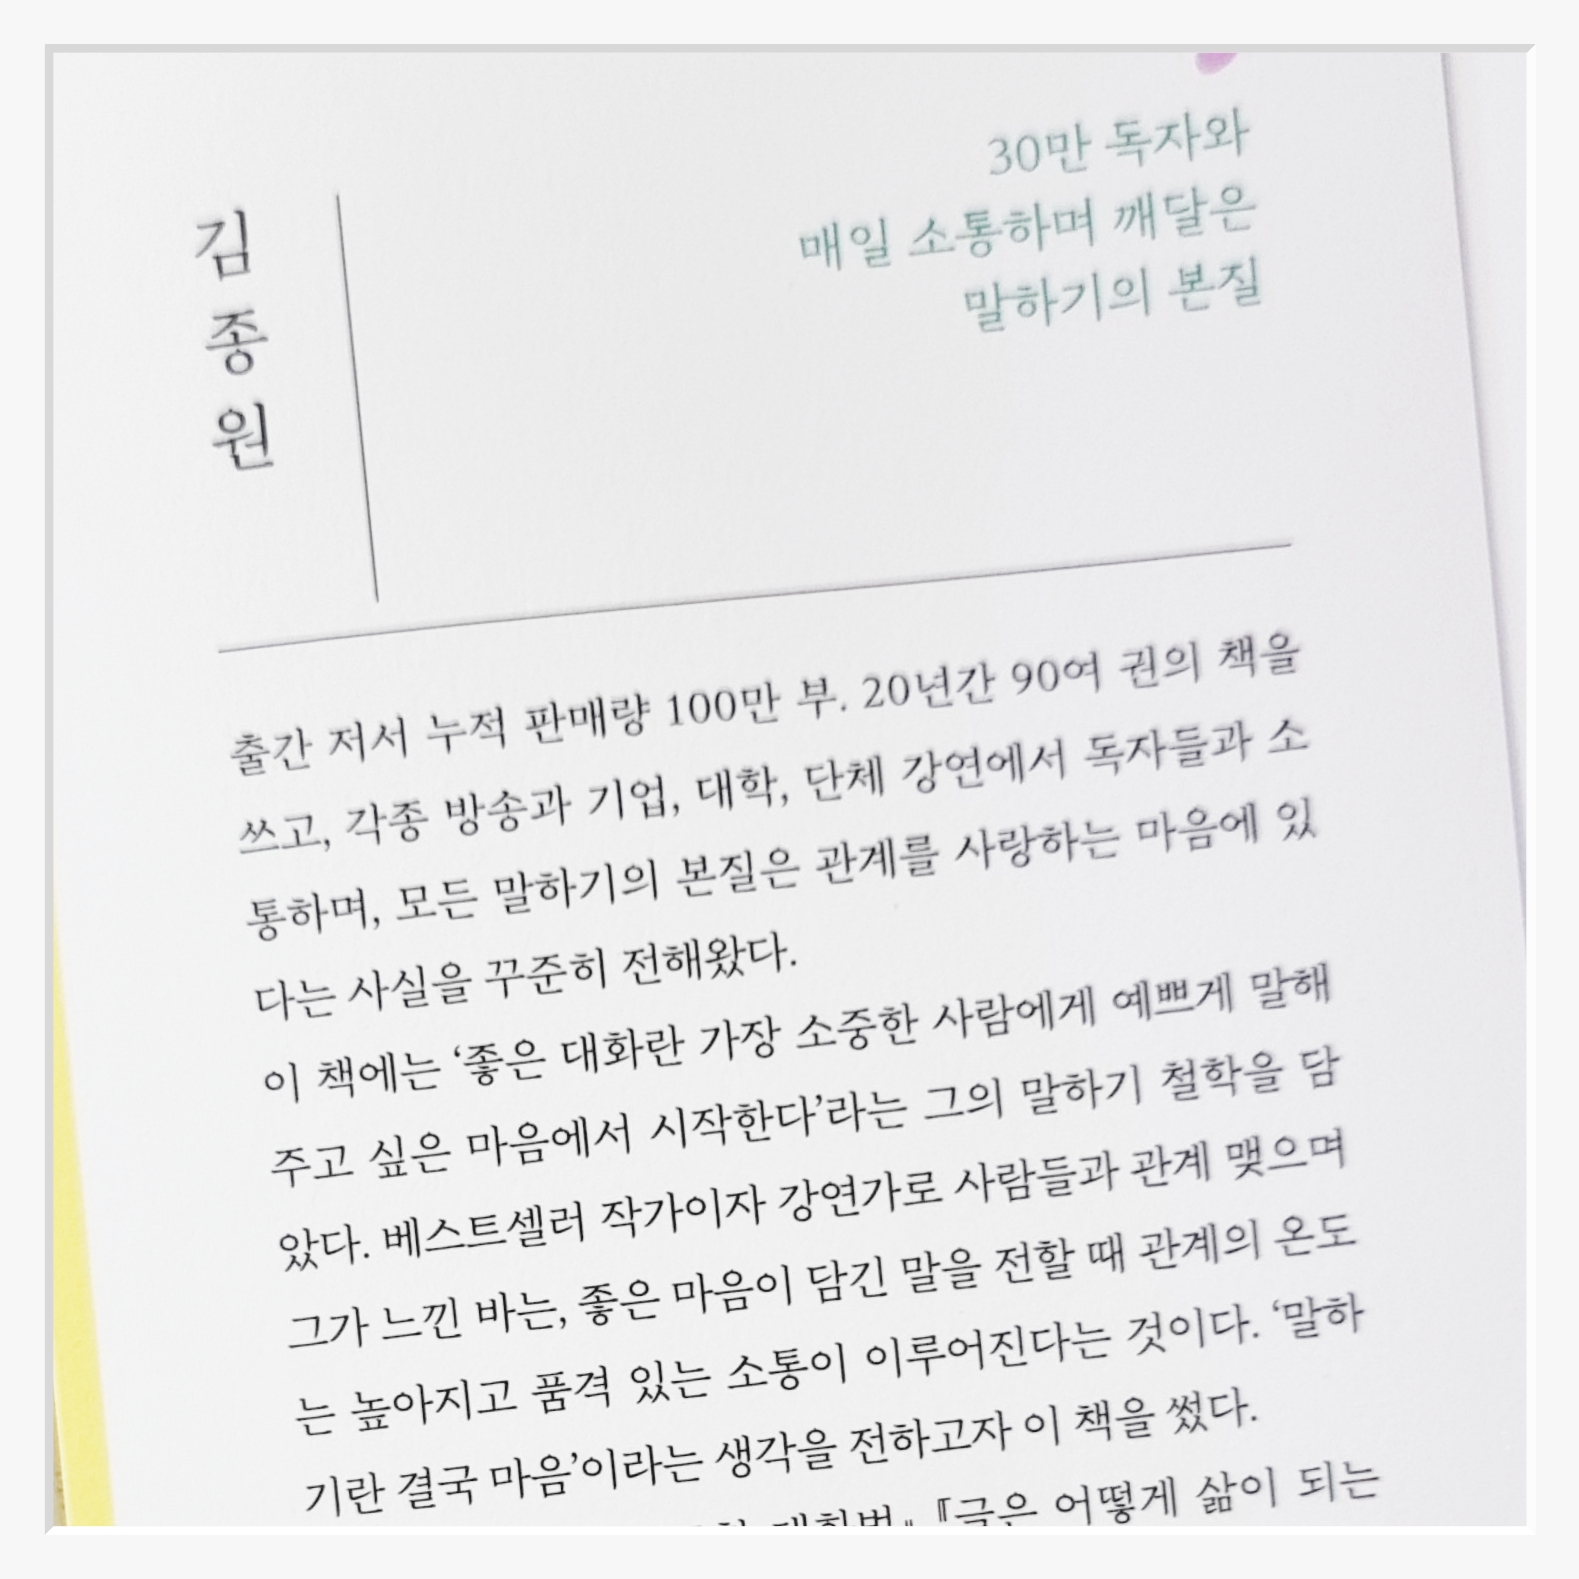 김종원
30만 독자와
매일 소통하며 깨달은
말하기의 본질
출간 저서 누적 판매량 100만 부. 20년간 90여 권의 책을
쓰고, 각종 방송과 기업, 대학, 단체 강연에서 독자들과 소
통하며, 모든 말하기의 본질은 관계를 사랑하는 마음에 있
다는 사실을 꾸준히 전해왔다.
이 책에는 ‘좋은 대화란 가장 소중한 사람에게 예쁘게 말해
주고 싶은 마음에서 시작한다’라는 그의 말하기 철학을 담
았다. 베스트셀러 작가이자 강연가로 사람들과 관계 맺으며
그가 느낀 바는, 좋은 마음이 담긴 말을 전할 때 관계의 온도
는 높아지고 품격 있는 소통이 이루어진다는 것이다. ‘말하
기란 결국 마음’이라는 생각을 전하고자 이 책을 썼다.
『글은 어떻게 삶이 되는